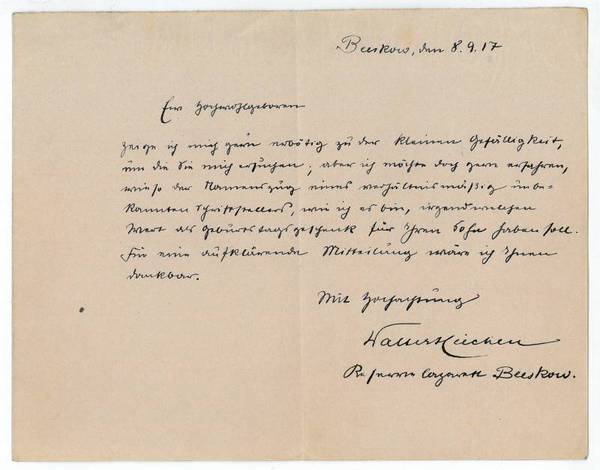 Beeskow, den 8.9.17
Ew Hochwohlgeboren
zeige ich mich gern erbötig zu der kleinen Gefälligkeit,
um die Sie mich ersuchen; aber ich möchte doch gern erfahren,
wieso der Namenszug eines verhältnismäßig unbe-
kannten Schriftstellers, wie ich es bin, irgendwelchen
Wert als Geburtstagsgeschenk für Ihren Sohn haben soll.
Für eine aufklärende Mitteilung wäre ich Ihnen
dankbar.
Mit Hochachtung
Walter
Reserve Lazarett Beeskow.